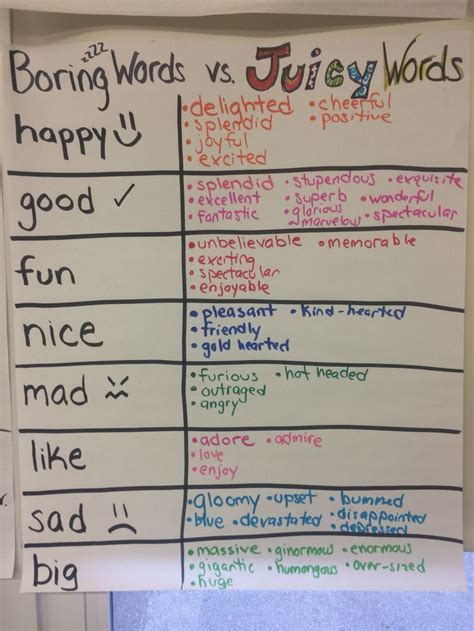 Boring zzzz Words vs. Juicy Words
happy
• delighted • cheerful
• splendid • positive
• joyful
• excited
good ✓
• splendid • stupendous • exquisite
• excellent • superb • wonderful
• fantastic • glorious • spectacular
• marvelous
fun
• unbelievable • memorable
• exciting
• spectacular
• enjoyable
nice
• pleasant • kind-hearted
• friendly
• gold hearted
mad
• furious • hot headed
• outraged
• angry
like
• adore • admire
• love
• enjoy
sad
• gloomy • upset • bummed
• blue • devastated • disappointed
• depressed
big
• massive • ginormous • enormous
• gigantic • humongous • over-sized
• huge